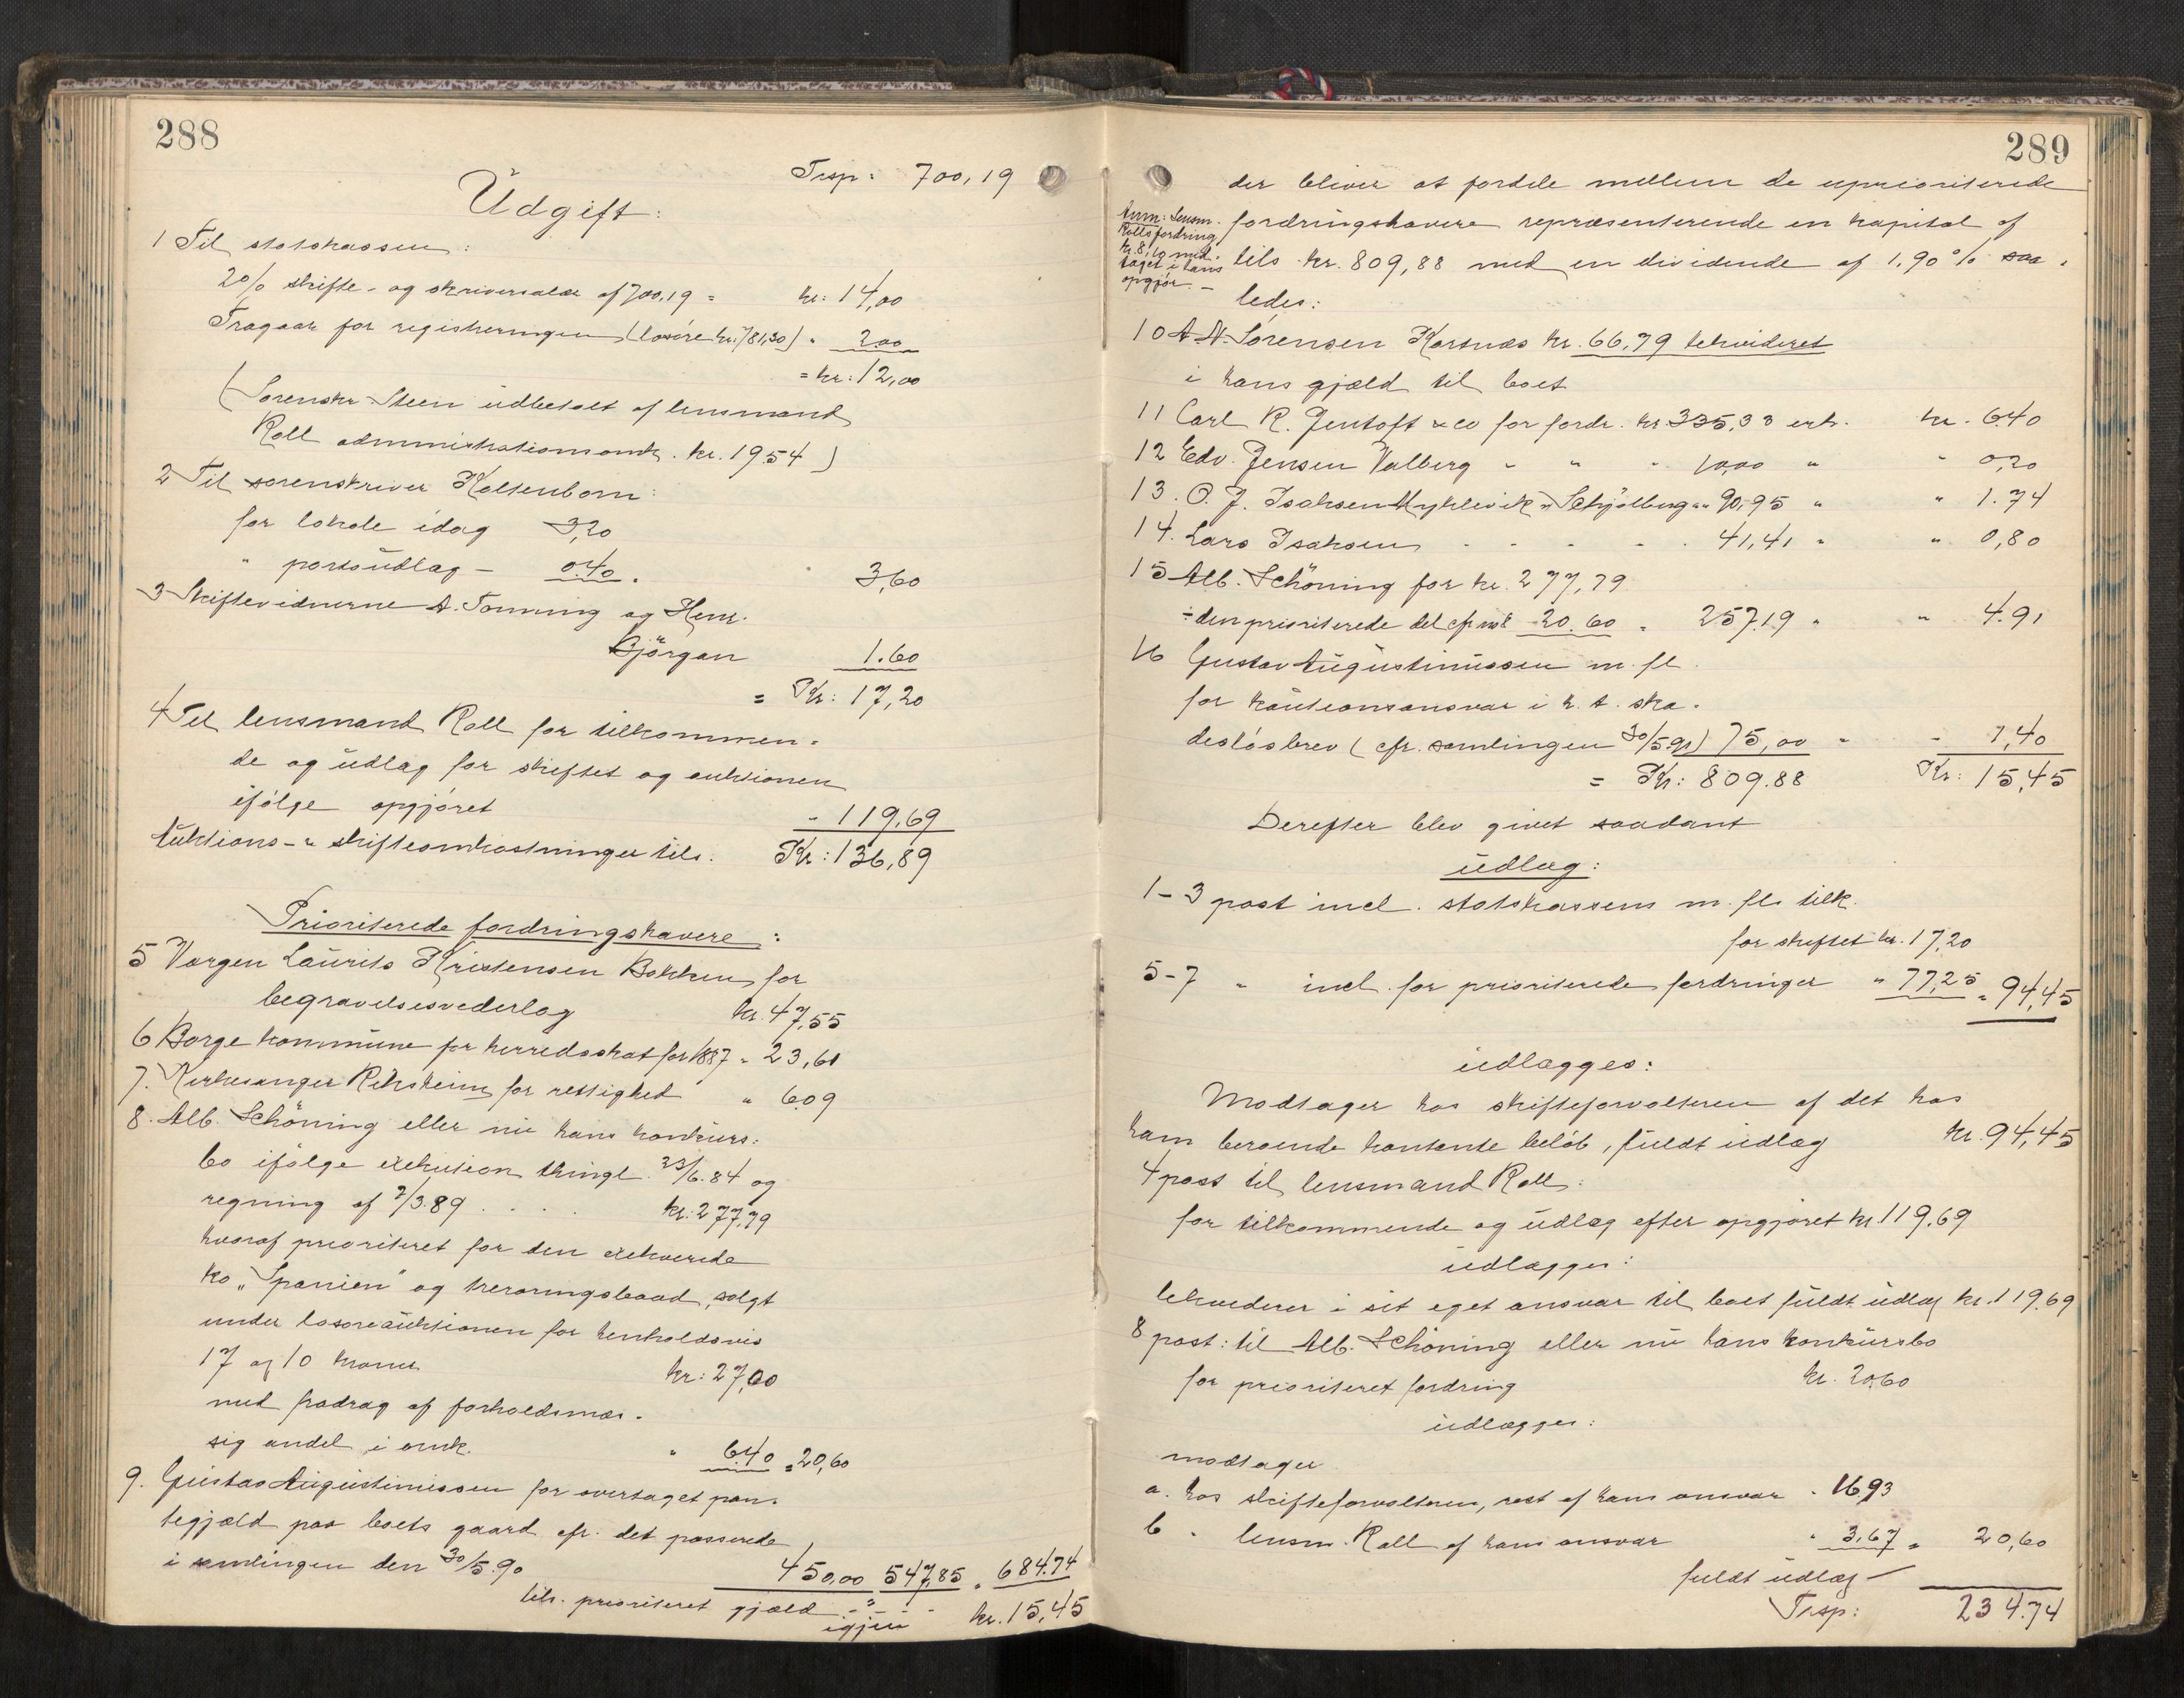 288
Trsp: 700,19
Udgift:
1 Til statskassen:
2% skifte- og skriversalær af 700,19 = kr: 14,00
Fragaar for registreringen (løsøre kr. 781,30) " 2.00
= kr: 12,00
(Sorenskr. Steen udbetalt af lensmand
Roll administrationsomk. kr. 19.54)
2 Til sorenskriver Koltenborn:
for lokale idag 3,20
" portoudlæg - 0.40. " 3,60
3 Skiftevidnerne A. Tonning og Henr.
Bjørgan 1.60
= Kr: 17,20
4 Til lensmand Roll for tilkommen-
de og udlæg for skiftet og auktionen
ifølge opgjøret " 119,69
Auktions- " skifteomkostninger tils. Kr: 136,89
Prioriterede fordringshavere:
5 Værgen Laurits Kristensen Bakken for
begravelsesvederlag kr. 47,55
6 Borge kommune for herredsskat for 1887 " 23,61
7. Kirkesanger Rekstein for rettighed " 6.09
8. Alb. Schöning eller nu hans konkurs-
bo ifølge exekution thingl. 23/6.84 og
regning af 7/3.89 . . . . kr: 277,79
hvoraf prioriteret for den exekverede
ko "Spanien" og treroringsbaad, solgt
under løsøreauktionen for henholdsvis
17 og 10 kroner kr: 27,00
med fradrag af forholdsmæs-
sig andel i omk. " 6.40 = 20,60
9. Gustav Augustinussen for overtaget pan-
tegjæld paa boets gaard cfr. det passerede
i samlingen den 30/5.90 450,00 547,85 = 684.74
tils. prioriteret gjæld
igjen kr. 15,45
289
der bliver at fordele mellem de uprioriterede
Anm: Lensm.
Rolls fordring
kr. 8,10 med-
taget i hans
opgjør. -
fordringshavere repræsenterende en kapital af
tils. kr. 809,88 med en dividende af 1,90% saa-
ledes:
10 A. N. Sörensen Karsnæs kr. 66,79 lekvideret
i hans gjæld til boet
11 Carl R. Jentoft & co for fordr. kr. 335,33 erh. kr. 6.40
12 Edv. Jensen Valberg " " " 10,00 " " 0,20
13. O. J. Isaksen Myklevik " Schjølberg " " 90,95 " " 1.74
14. Lars Isaksen - - - - 41,41 " " 0,80
15 Alb. Schöning for kr. 277,79
÷ den prioriterede del cfr. no 8 20.60 = 257.19 " " 4.91
16 Gustav Augustinussen m. fl.
for kautionsansvar i h. t. ska-
desløsbrev (cfr. samlingen 30/5.90) 75,00 " - 1,40
= Kr: 809.88 Kr: 15,45
Derefter blev givet saadant
udlæg:
1-3 post incl. statskassens m. fl. tilk.
for skiftet kr. 17,20
5-7 " incl. for prioriterede fordringer " 77,25 = 94,45
udlægges:
Modtager hos skifteforvalteren af det hos
ham beroende kontante beløb, fuldt udlæg kr. 94,45
4 post til lensmand Roll:
for tilkommende og udlæg efter opgjøret kr. 119.69
udlægges:
lekviderer i sit eget ansvar til boet fuldt udlæg kr. 119.69
8 post: til Alb. Schöning eller nu hans konkursbo
for prioriteret fordring kr. 20.60
udlægges:
modtager
a. hos skifteforvalteren, rest af hans ansvar " 16.93
b " lensm. Roll af hans ansvar " 3,67 = 20,60
fuldt udlæg -
Trsp: 234.74